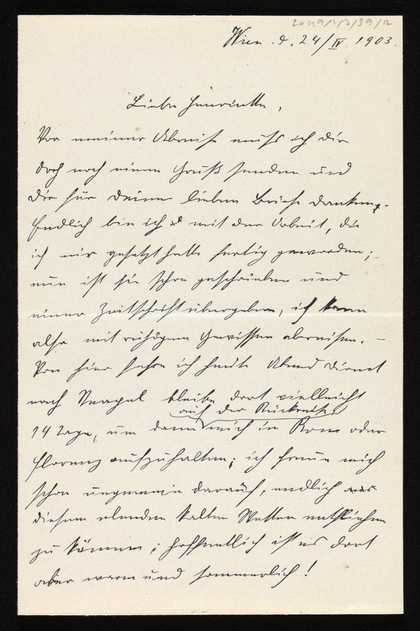 Wien d. 24/IV 1903.
Liebe Henriette,
Vor meiner Abreise muss ich dir
doch noch einen Gruß senden und
dir für deinen lieben Brief danken.
Endlich bin ich mit der Arbeit, die
ich mir gesetzt hatte fertig geworden;
nun ist sie schon geschrieben und
einer Zeitschrift übergeben, ich kann
also mit ruhigem Gewissen abreisen. –
Von hier fahre ich heute Abend direct
nach Neapel bleibe dort vielleicht
auf der Rückreise
14 Tage, um dann mich in Rom oder
Florenz aufzuhalten; ich freue mich
schon ungemein darauf, endlich
diesem elenden kalten Wetter entfliehen
zu können; hoffentlich ist es dort
aber warm und sommerlich!